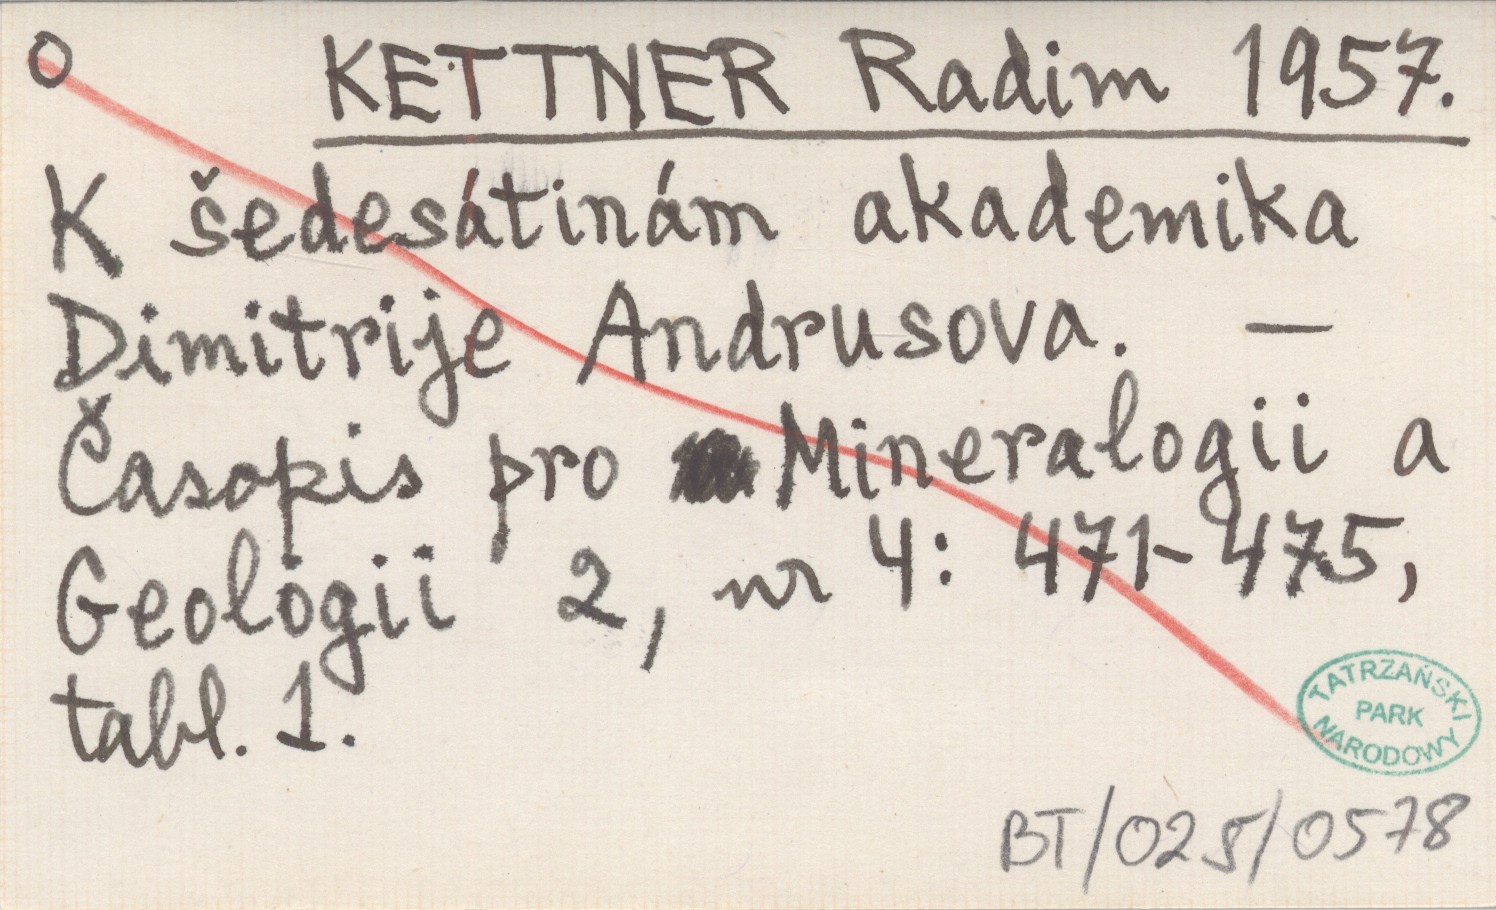 O KETTNER Radim 1957.
K šedesátinám akademika
Dimitrije Andrusova. —
Časopis pro Mineralogii a
Geologii 2, nr 4: 471-475,
tabl. 1.
TATRZAŃSKI
PARK
NARODOWY
BT/025/0578